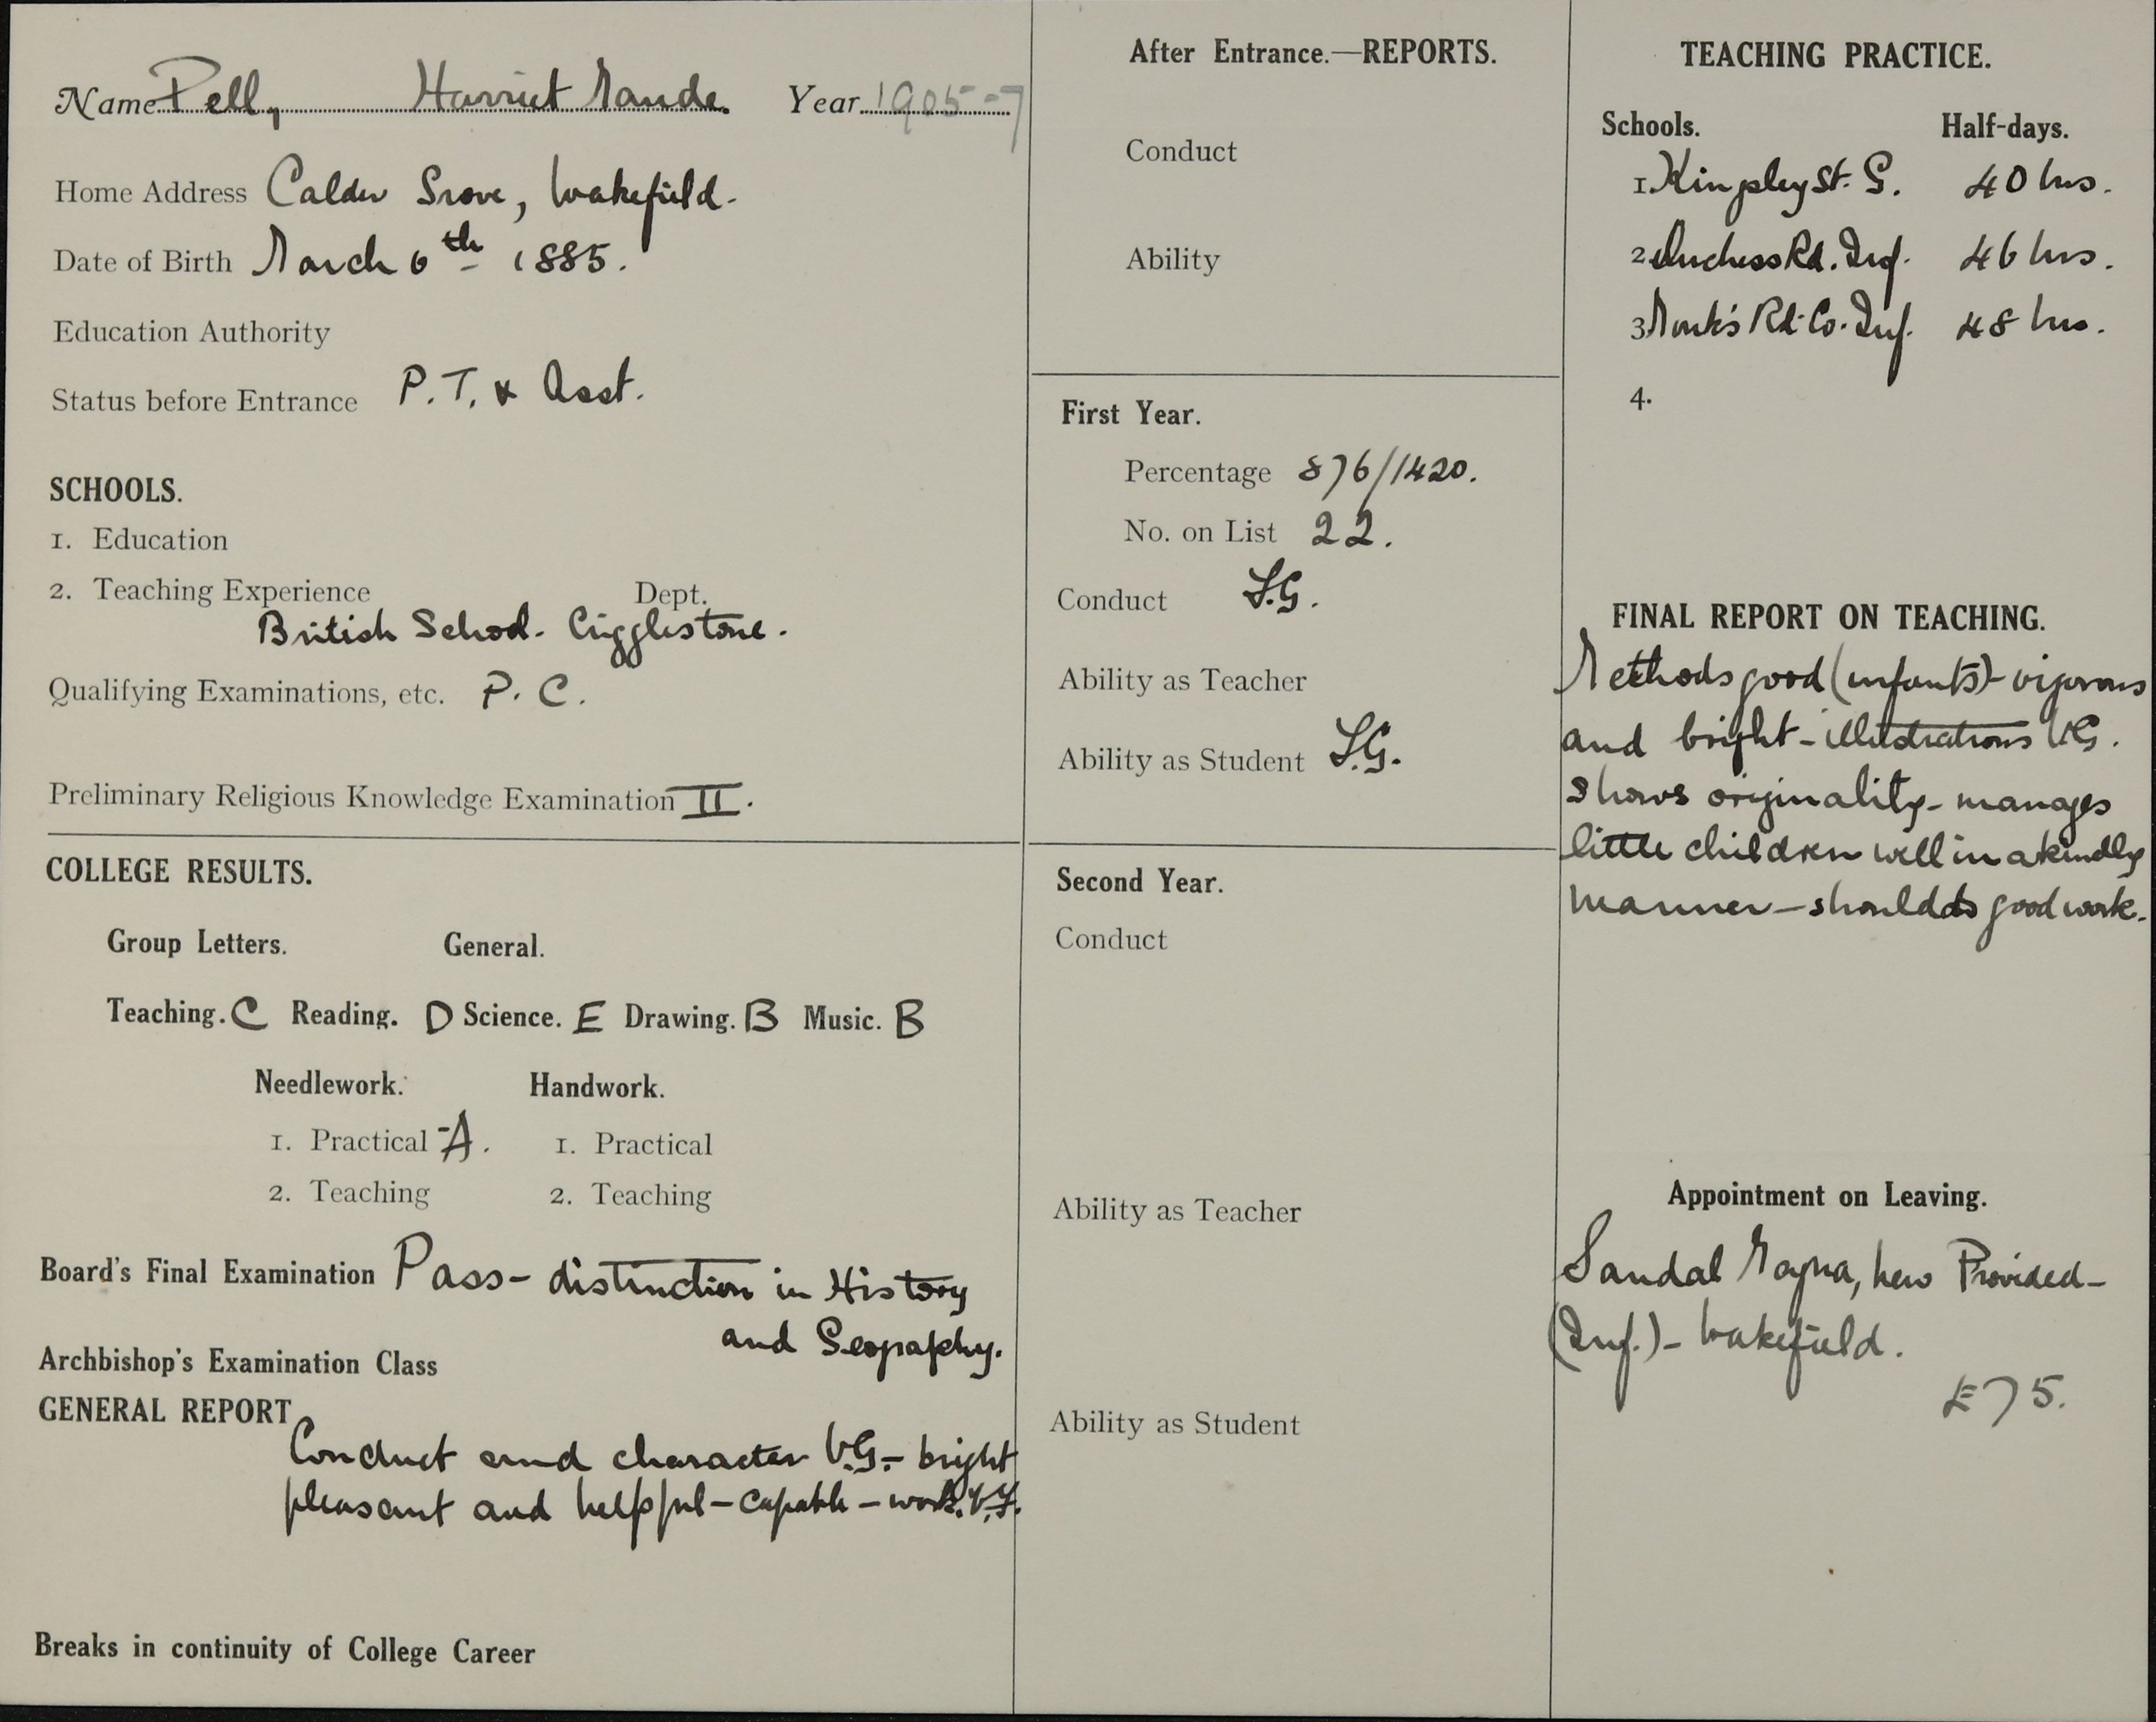 Name Pell, Harriet Maude. Year 1905-7
Home Address Calder Grove, Wakefield.
Date of Birth March 6th 1885.
Education Authority
Status before Entrance P.T. & Asst.
SCHOOLS.
1. Education
2. Teaching Experience Dept.
British School. Crigglestone.
Qualifying Examinations, etc. P.C.
Preliminary Religious Knowledge Examination II.
COLLEGE RESULTS.
Group Letters. General.
Teaching. C Reading. D Science. E Drawing. B Music. B
Needlework. Handwork.
1. Practical -A. 1. Practical
2. Teaching 2. Teaching
Board's Final Examination Pass - distinction in History
and Geography.
Archbishop's Examination Class
GENERAL REPORT
Conduct and character V.G. - bright
pleasant and helpful - capable - work. V.F.
Breaks in continuity of College Career
After Entrance.—REPORTS.
Conduct
Ability
First Year.
Percentage 876/1420.
No. on List 22.
Conduct
Ability as Teacher
Ability as Student
Second Year.
Conduct
Ability as Teacher
Ability as Student
TEACHING PRACTICE.
Schools. Half-days.
1. Kingsley St. G. 40 hrs.
2 Duchess Rd. Inf. 46 hrs.
3 Monk's Rd. Co. Inf. 48 hrs.
4.
FINAL REPORT ON TEACHING.
Methods good (infants) - vigorous
and bright - illustrations V.G.
shows originality - manages
little children well in a kindly
manner - should do good work.
Appointment on Leaving.
Sandal Magna, New Provided -
(Inf.) - Wakefield.
£75.